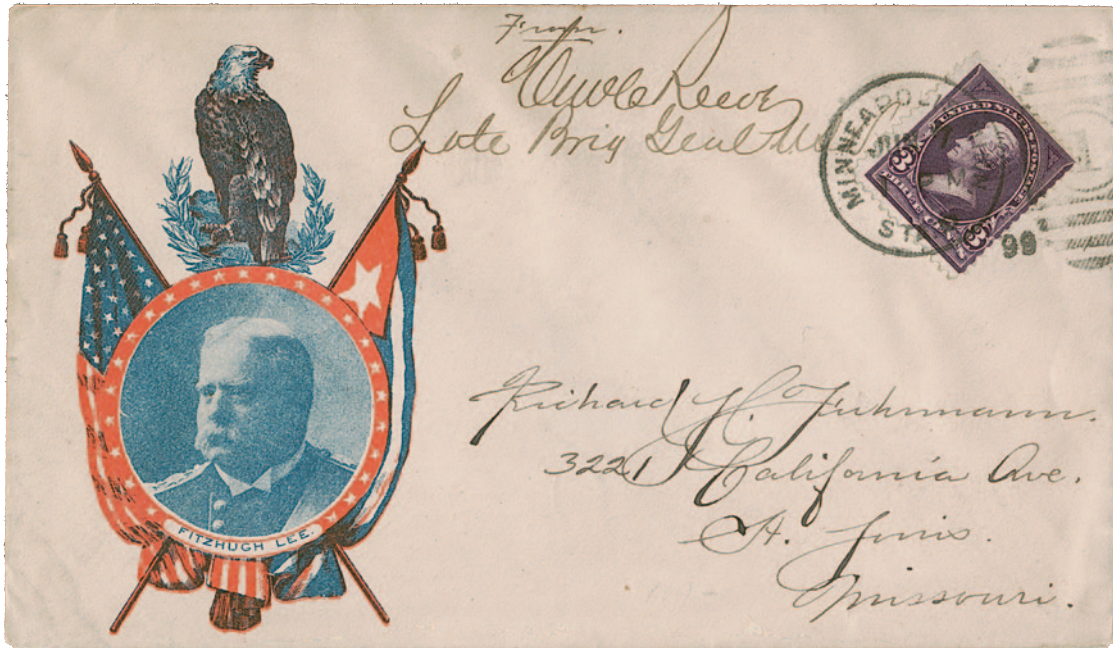 From.
Reeve
Late Brig Genl
MINNEAPOL
99
UNITED STATES POSTAGE
3
3
FITZHUGH LEE.
Richard H. Fuhrmann.
3221 California Ave.
St. Louis.
Missouri.